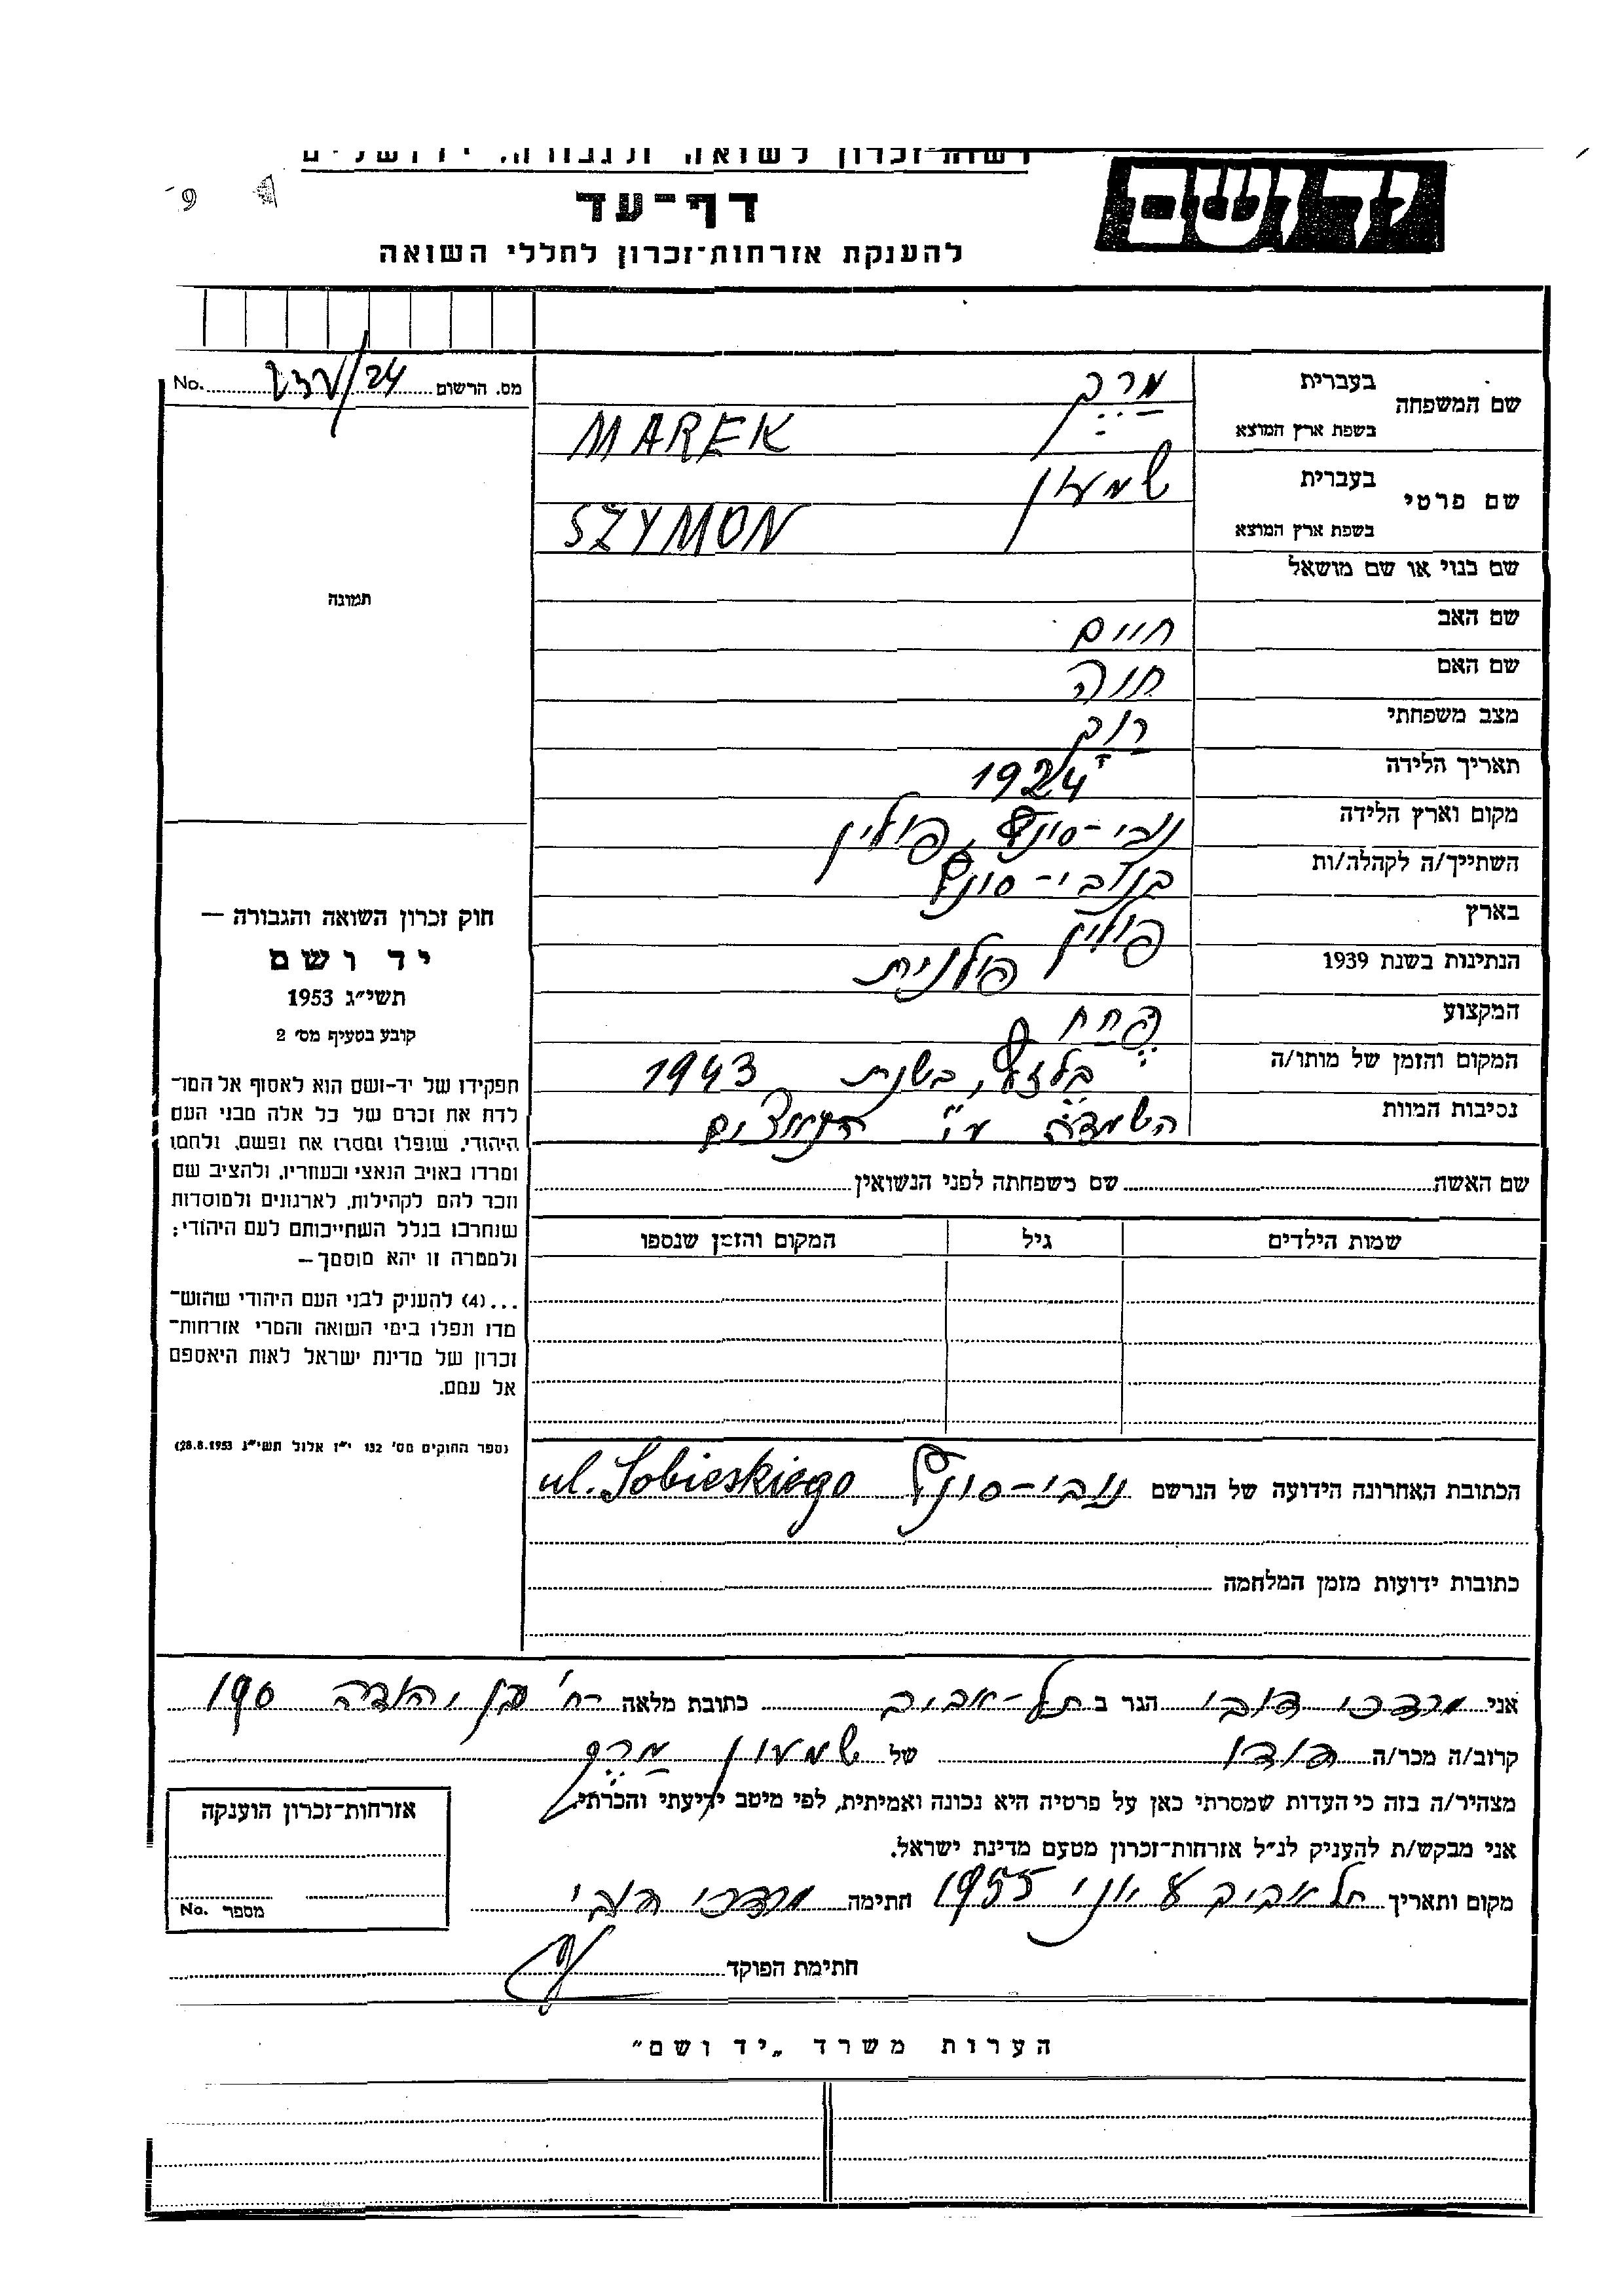 רשות זכרון לשואה ולגבורה, ירושלים
יד ושם
דף-עד
להענקת אזרחות-זכרון לחללי השואה
מס. הרשום No. 24
שם המשפחה בעברית מרק
בשפת ארץ המוצא MAREK
שם פרטי בעברית שמעון
בשפת ארץ המוצא SZYMON
שם כנוי או שם מושאל
תמונה
שם האב חיים
שם האם חנה
מצב משפחתי רוק
תאריך הלידה 1924
מקום וארץ הלידה נובי-סונץ, פולין
השתייך/ה לקהלה/ות בנובי-סונץ
בארץ פולין
הנתינות בשנת 1939 פולנית
המקצוע פחח
המקום והזמן של מותו/ה בלזץ, בשנת 1943
נסיבות המוות השמדה ע"י הנאצים
חוק זכרון השואה והגבורה —
יד ושם
תשי"ג 1953
קובע בסעיף מס' 2
תפקידו של יד-ושם הוא לאסוף אל המו־
לדת את זכרם של כל אלה מבני העם
היהודי, שנפלו ומסרו את נפשם, נלחמו
ומרדו באויב הנאצי ובעוזריו, ולהציב שם
וזכר להם לקהילות, לארגונים ולמוסדות
שנחרבו בגלל השתייכותם לעם היהודי;
ולמטרה זו יהא מוסמך—
...(4) להעניק לבני העם היהודי שהוש־
מדו ונפלו בימי השואה והמרי אזרחות־
זכרון של מדינת ישראל לאות היאספם
אל עמם.
(ספר החוקים מס' 132 י"ז אלול תשי"ג 28.8.1953)
שם האשה שם משפחתה לפני הנשואין
שמות הילדים גיל המקום והזמן שנספו
הכתובת האחרונה הידועה של הנרשם נובי-סונץ ul. Sobieskiego
כתובות ידועות מזמן המלחמה
אני מרדכי דובי הגר ב תל-אביב כתובת מלאה רח' בן יהודה 190
קרוב/ה מכר/ה דודו של שמעון מרק
מצהיר/ה בזה כי העדות שמסרתי כאן על פרטיה היא נכונה ואמיתית, לפי מיטב ידיעתי והכרתי.
אני מבקש/ת להעניק לנ"ל אזרחות-זכרון מטעם מדינת ישראל.
מקום ותאריך תל אביב 1955 חתימה מרדכי דובי
אזרחות-זכרון הוענקה
מספר No.
חתימת הפוקד
הערות משרד „יד ושם"